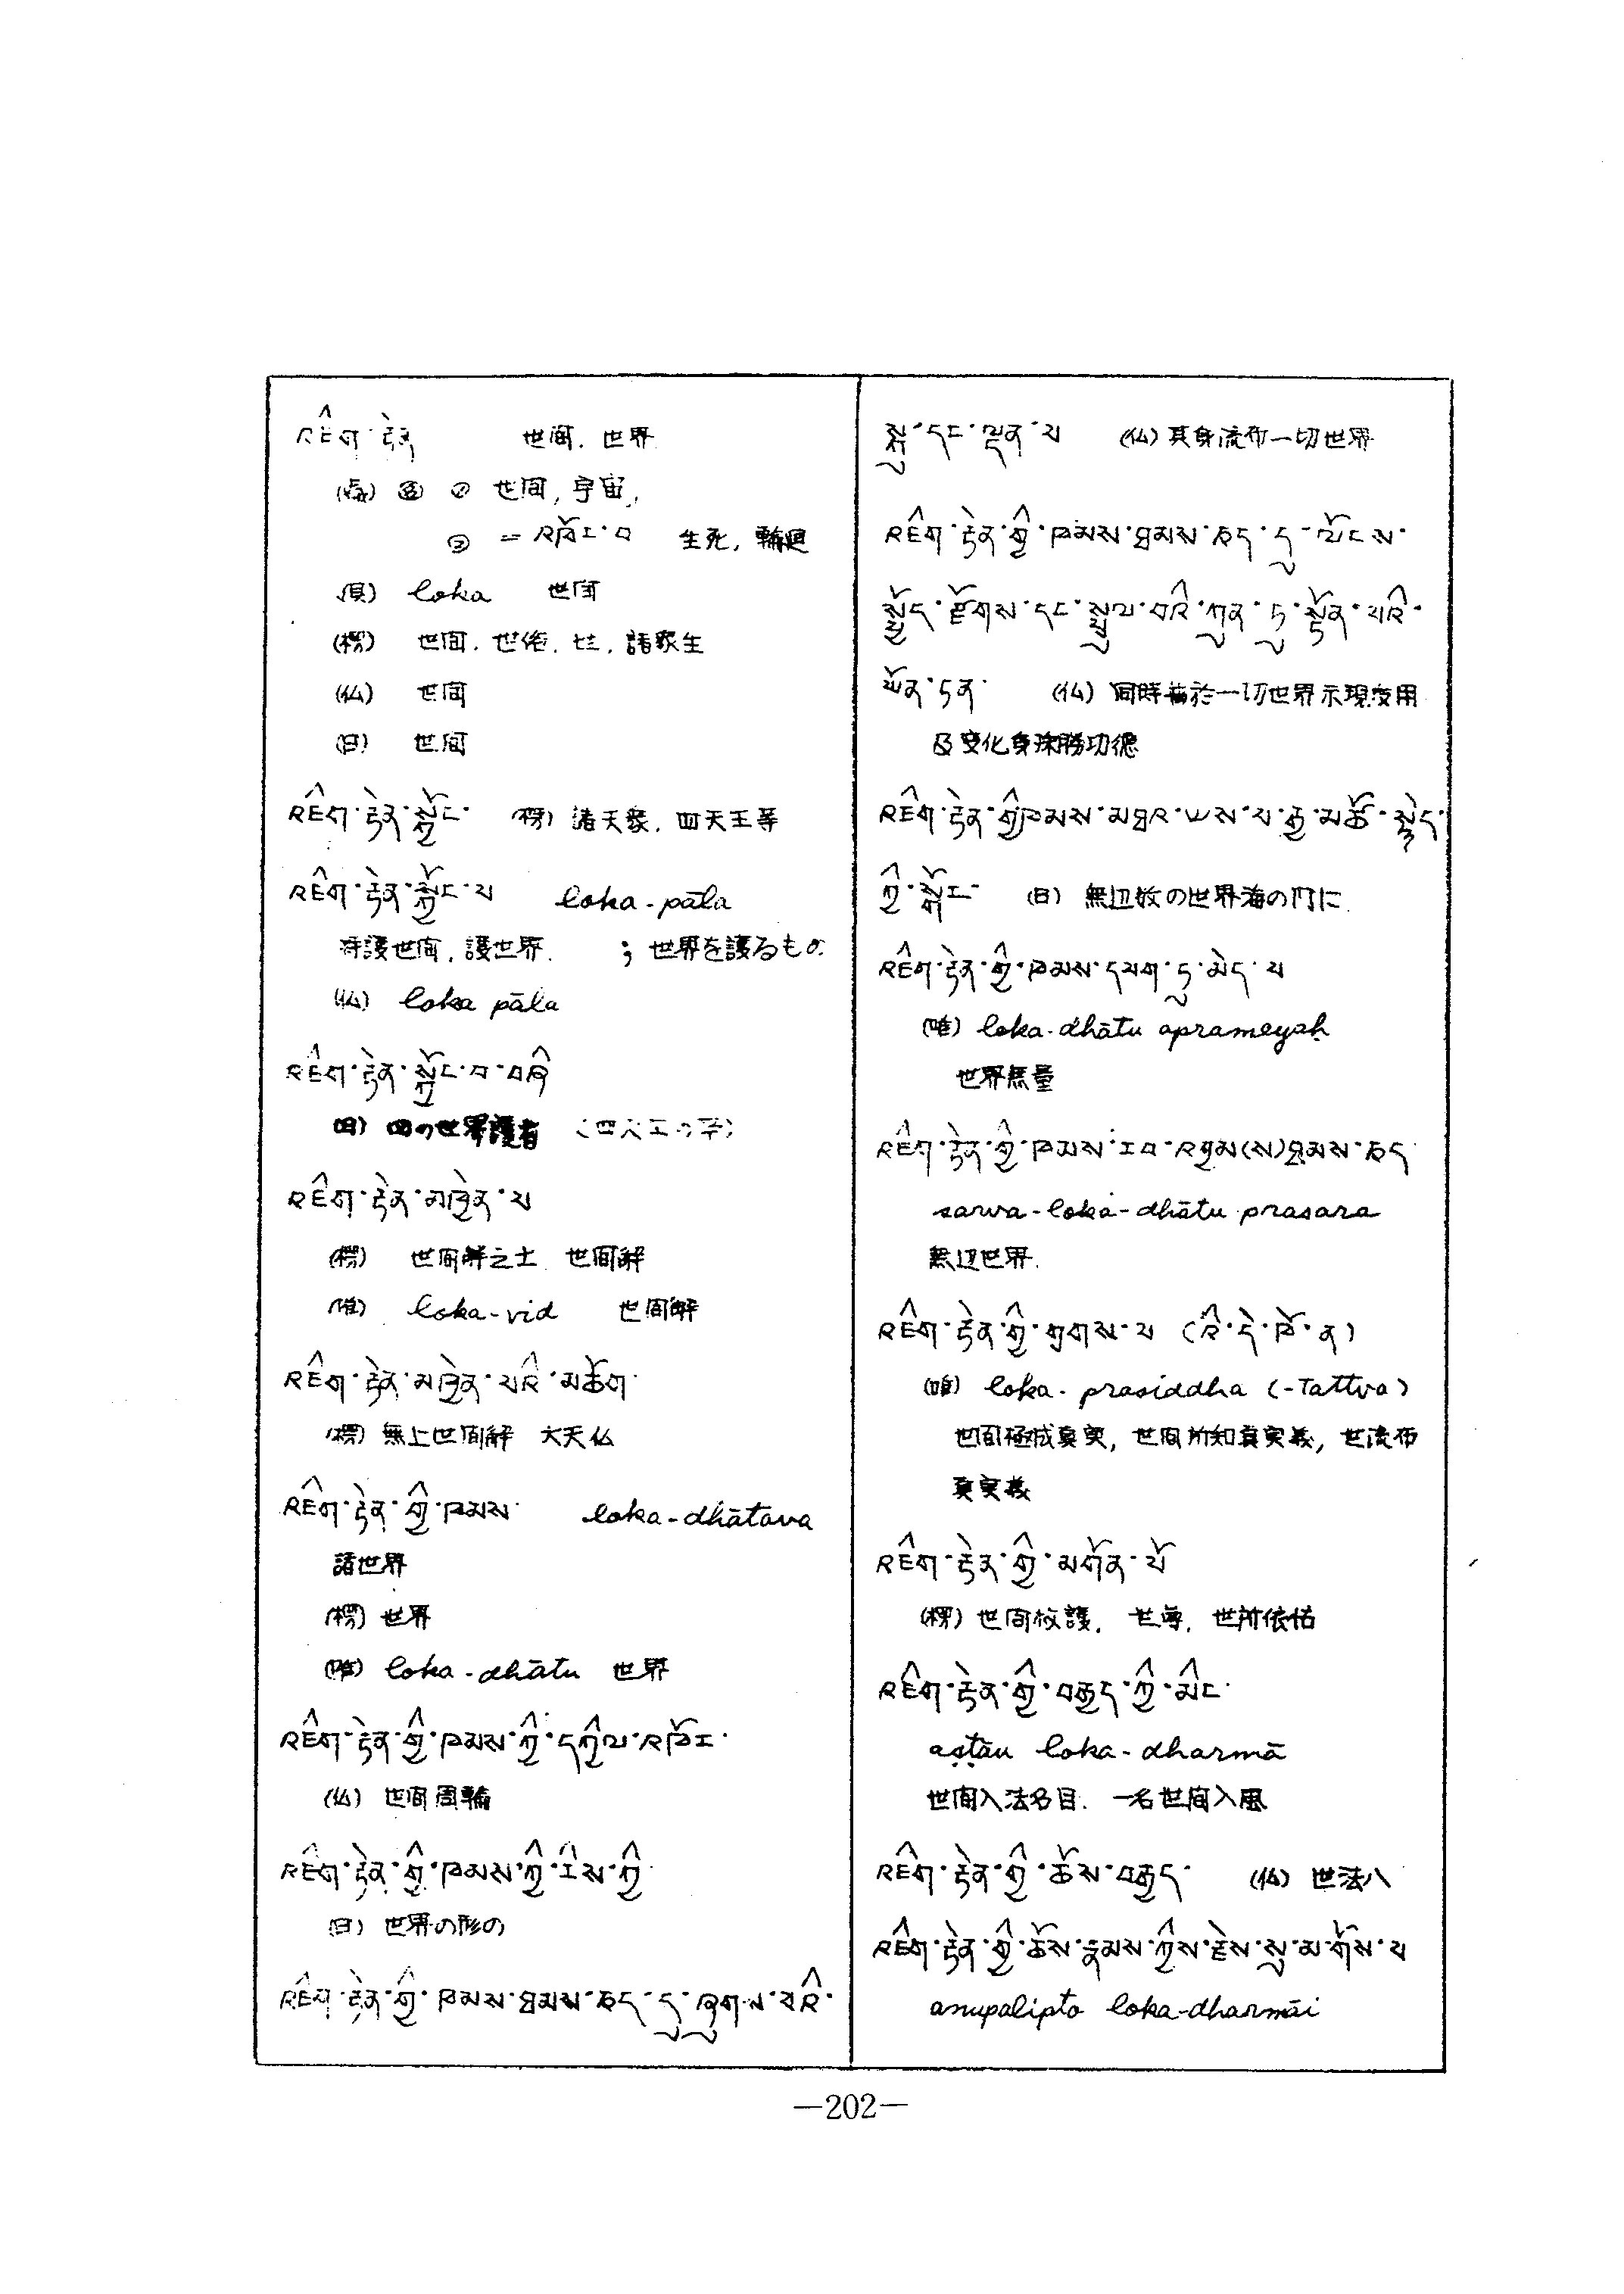 འཇིག་རྟེན 世間. 世界
世间, 宇宙,
= འཁོར་བ 生死, 輪廻
loka 世间
(楞) 世间. 世俗. 世. 諸衆生
(仏) 世间
(日) 世间
འཇིག་རྟེན་སྐྱོང་ (楞) 諸天衆. 四天王等
འཇིག་རྟེན་སྐྱོང་བ loka-pāla
守護世间, 護世界. ; 世界を護るもの
(仏) loka pāla
འཇིག་རྟེན་སྐྱོང་བ་བཞི
日) 四の世界護者
འཇིག་རྟེན་མཁྱེན་པ
(楞) 世间解之士 世间解
(唯) loka-vid 世间解
འཇིག་རྟེན་མཁྱེན་པའི་མཆོག་
(楞) 無上世间解 大天仏
འཇིག་རྟེན་གྱི་ཁམས་ loka-dhātava
諸世界
(楞) 世界
(唯) loka-dhātu 世界
འཇིག་རྟེན་གྱི་ཁམས་ཀྱི་དཀྱིལ་འཁོར་
(仏) 世间周輪
འཇིག་རྟེན་གྱི་ཁམས་ཀྱི་རིས་ཀྱི་
(日) 世界の形の
འཇིག་རྟེན་གྱི་ཁམས་ཐམས་ཅད་དུ་ཞུགས་པའི་
སྐུ་དང་ལྡན་པ (仏) 其身流布一切世界
འཇིག་རྟེན་གྱི་ཁམས་ཐམས་ཅད་དུ་ལོངས་
སྤྱོད་རྫོགས་དང་སྤྲུལ་བའི་ཀུན་ཏུ་སྟོན་པའི་
ཡོན་ཏན་ (仏) 同時 一切世界示現受用
及変化身殊勝功徳
འཇིག་རྟེན་གྱི་ཁམས་མཐའ་ཡས་པ་རྒྱ་མཚོ་སྙེད་
ཀྱི་སྒོར་ (日) 無辺数の世界海の門に
འཇིག་རྟེན་གྱི་ཁམས་དཔག་ཏུ་མེད་པ
(唯) loka-dhātu aprameyaḥ
世界無量
འཇིག་རྟེན་གྱི་ཁམས་རབ་འབྱམ(ས)ཐམས་ཅད
sarva-loka-dhātu prasara
無辺世界.
འཇིག་རྟེན་གྱི་གྲགས་པ (འི་དེ་ཁོ་ན)
(唯) loka-prasiddha (-Tattva)
世间極成真実, 世间所知真実義, 世流布
真実義
འཇིག་རྟེན་གྱི་མགོན་པོ
(楞) 世间救護. 世尊. 世所依怙
འཇིག་རྟེན་གྱི་བརྒྱད་ཀྱི་མིང་
aṣṭāu loka-dharmā
世间八法名目. 一名世间八風
འཇིག་རྟེན་གྱི་ཆོས་བརྒྱད་ (仏) 世法八
འཇིག་རྟེན་གྱི་ཆོས་རྣམས་ཀྱིས་རྗེས་སུ་མ་གོས་པ
anupalipto loka-dharmāi
—202—